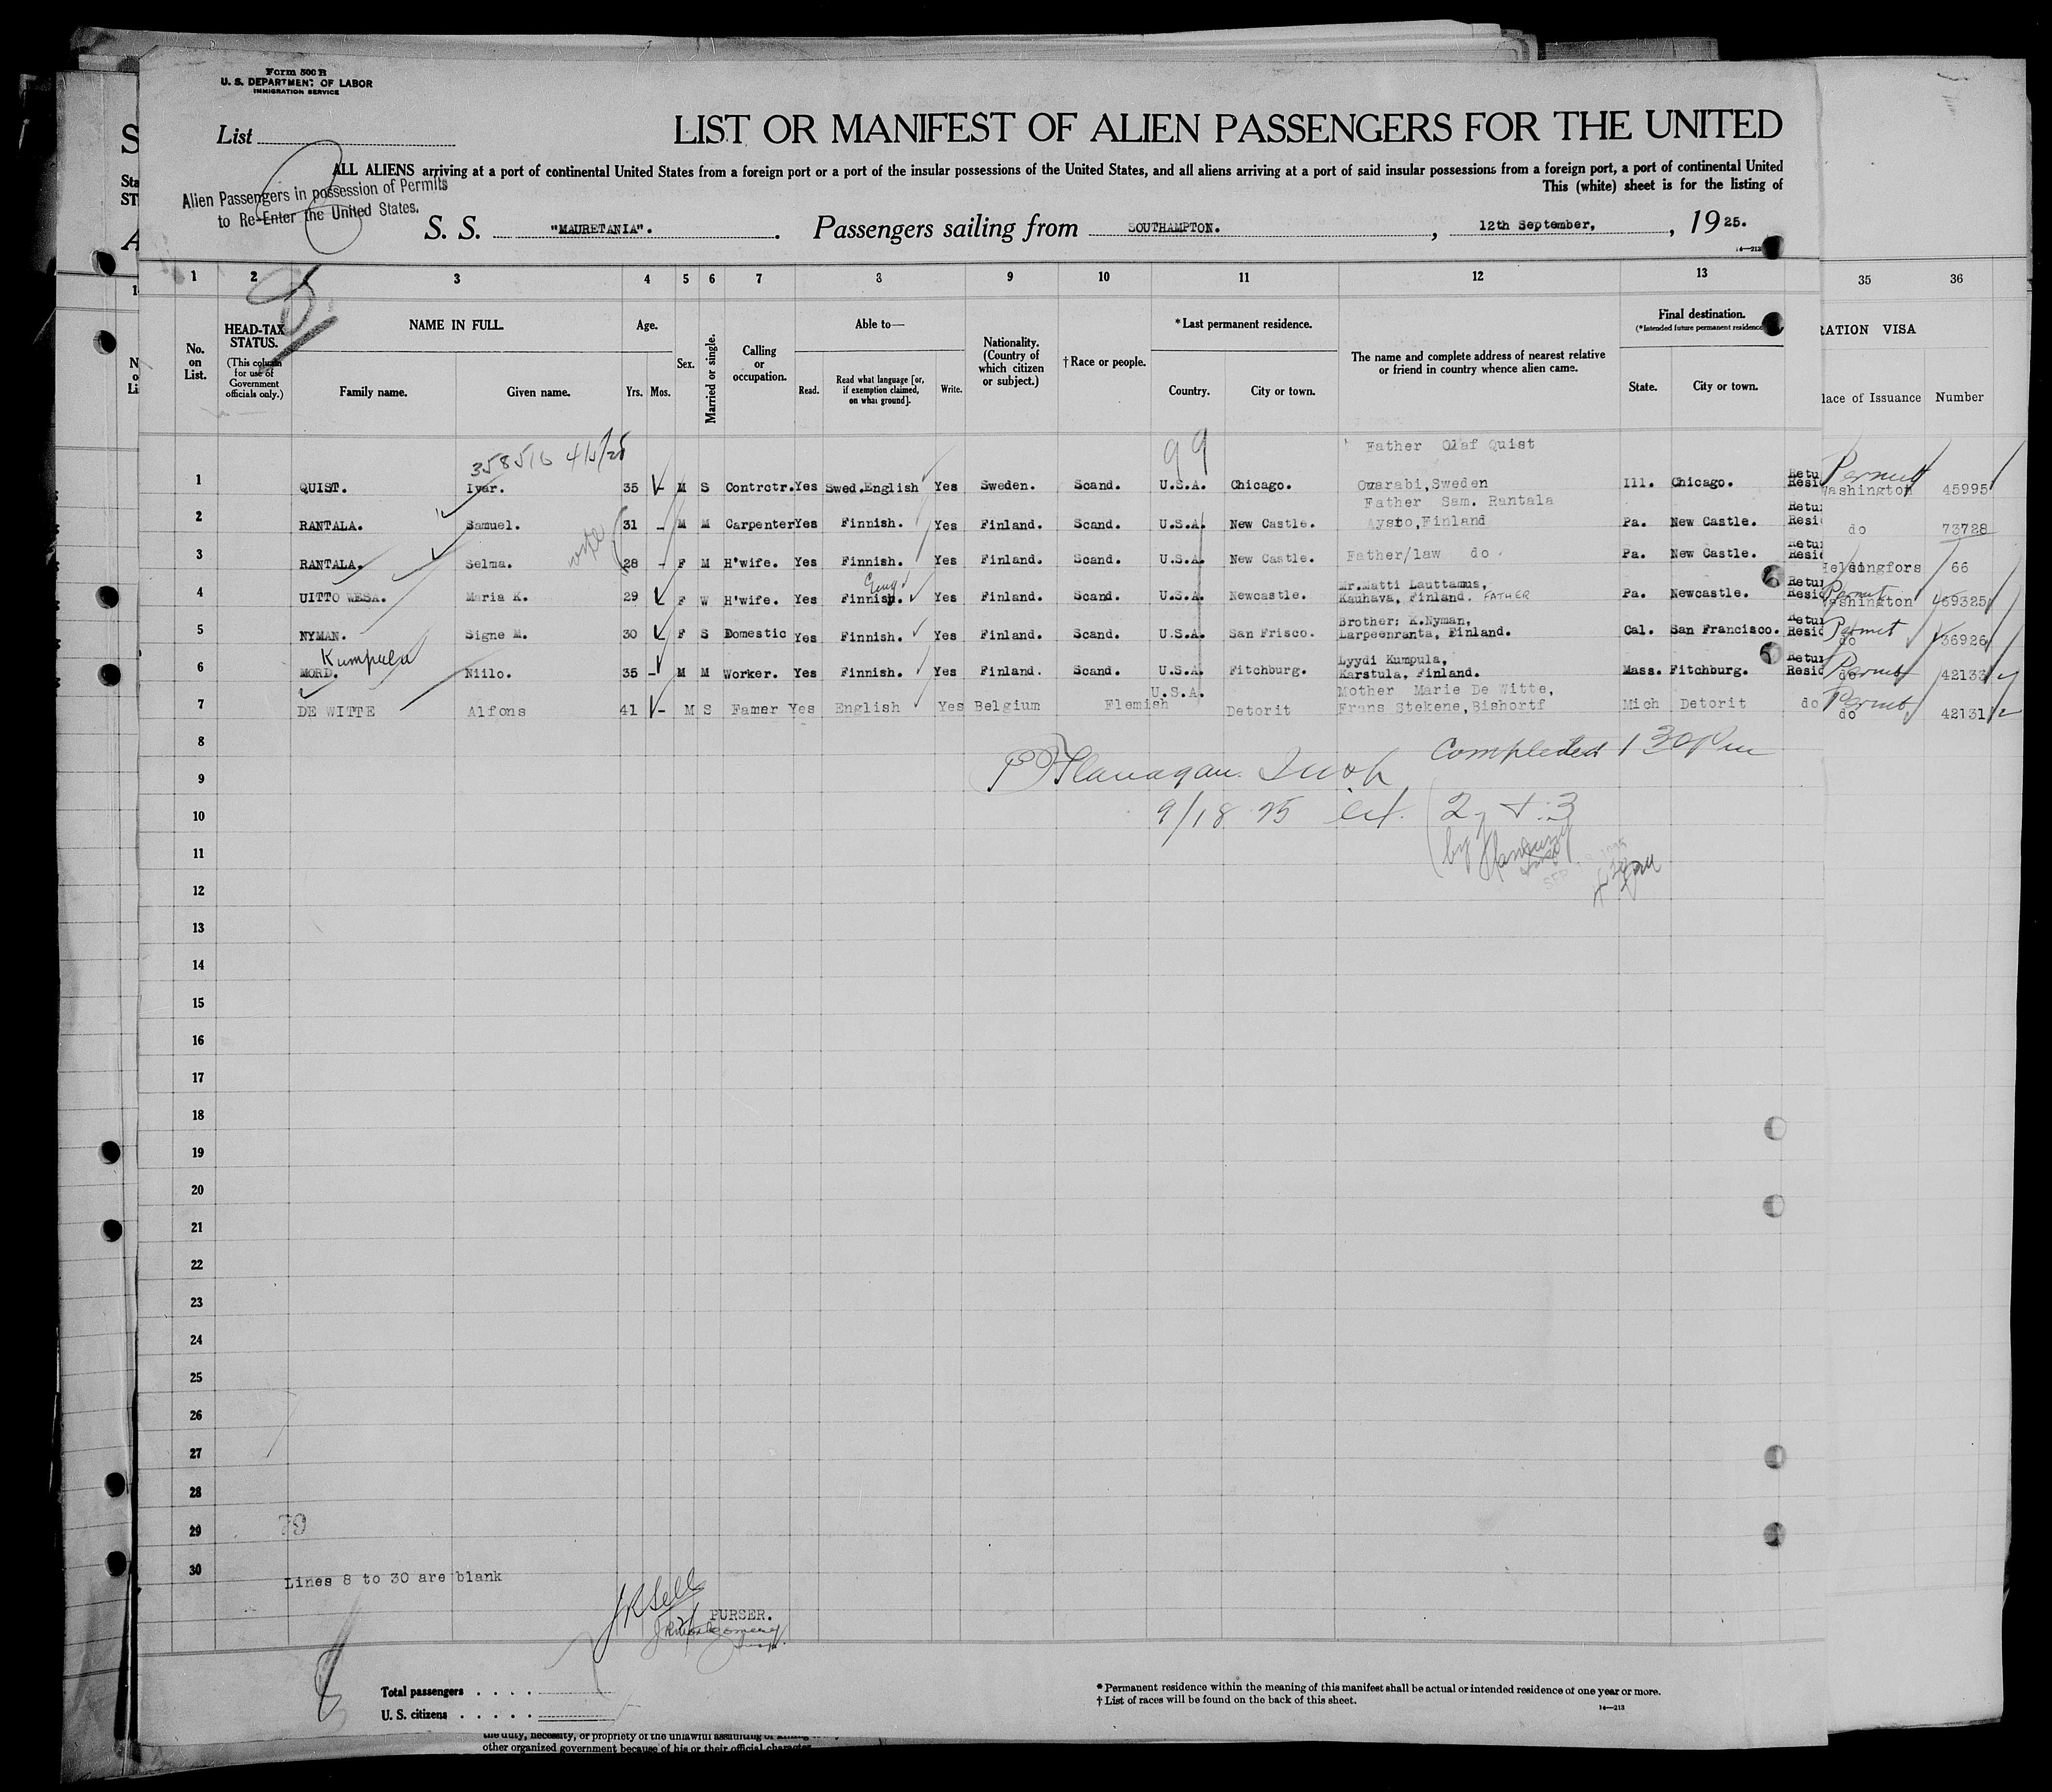 Form 500 B
U. S. DEPARTMENT OF LABOR
IMMIGRATION SERVICE
List
LIST OR MANIFEST OF ALIEN PASSENGERS FOR THE UNITED
ALL ALIENS arriving at a port of continental United States from a foreign port or a port of the insular possessions of the United States, and all aliens arriving at a port of said insular possessions from a foreign port, a port of continental United
This (white) sheet is for the listing of
Alien Passengers in possession of Permits
to Re-Enter the United States.
S. S. "MAURETANIA". Passengers sailing from SOUTHAMPTON. , 12th September, , 1925.
1 2 3 4 5 6 7 8 9 10 11 12 13 35 36
No. on List.
HEAD-TAX STATUS.
(This column for use of Government officials only.)
NAME IN FULL.
Family name. Given name.
Age.
Yrs. Mos.
Sex.
Married or single.
Calling or occupation.
Able to—
Read. Read what language [or, if exemption claimed, on what ground]. Write.
Nationality. (Country of which citizen or subject.)
† Race or people.
* Last permanent residence.
Country. City or town.
The name and complete address of nearest relative or friend in country whence alien came.
Final destination.
(*Intended future permanent residence
State. City or town.
RATION VISA
lace of Issuance Number
358516 99 Father Olaf Quist
1 QUIST. Ivar. 35 - M S Contrctr. Yes Swed.English Yes Sweden. Scand. U.S.A. Chicago. Ovarabi,Sweden Ill. Chicago. Retu Resi Permit Washington 45995
Father Sam. Rantala
2 RANTALA. Samuel. 31 - M M Carpenter Yes Finnish. Yes Finland. Scand. U.S.A. New Castle. Aysto,Finland Pa. New Castle. Retu Resi do 73728
3 RANTALA. Selma. wife 28 - F M H'wife. Yes Finnish. Yes Finland. Scand. U.S.A. New Castle. Father/law do Pa. New Castle. Retu Resi Helsingfors 66
Eng. Mr.Matti Lauttamus,
4 UITTO WESA. Maria K. 29 F W H'wife. Yes Finnish. Yes Finland. Scand. U.S.A. Newcastle. Kauhava, Finland. FATHER Pa. Newcastle. Retur Resid Permit Washington 469325
Brother: K.Nyman,
5 NYMAN. Signe M. 30 F S Domestic Yes Finnish. Yes Finland. Scand. U.S.A. San Frisco. Larpeenranta, Finland. Cal. San Francisco. Retur Resid Permit do 36926
Kumpula Lyydi Kumpula,
6 MORD. Niilo. 35 - M M Worker. Yes Finnish. Yes Finland. Scand. U.S.A. Fitchburg. Karstula, Finland. Mass. Fitchburg. Retur Resid Permit do 42133
U.S.A. Mother Marie De Witte,
7 DE WITTE Alfons 41 - M S Famer Yes English Yes Belgium Flemish Detorit Frans Stekene,Bishortf Mich Detorit do Permit do 42131
8 Completed 1 30 Pm
9 Flanagan
10 9/18 25 2 & 3
11 by
12
13
14
15
16
17
18
19
20
21
22
23
24
25
26
27
28
29
79
30
Lines 8 to 30 are blank
PURSER.
Total passengers . . . .
U. S. citizens . . . . .
* Permanent residence within the meaning of this manifest shall be actual or intended residence of one year or more.
† List of races will be found on the back of this sheet.
14—213
other organized government because of his or their official character